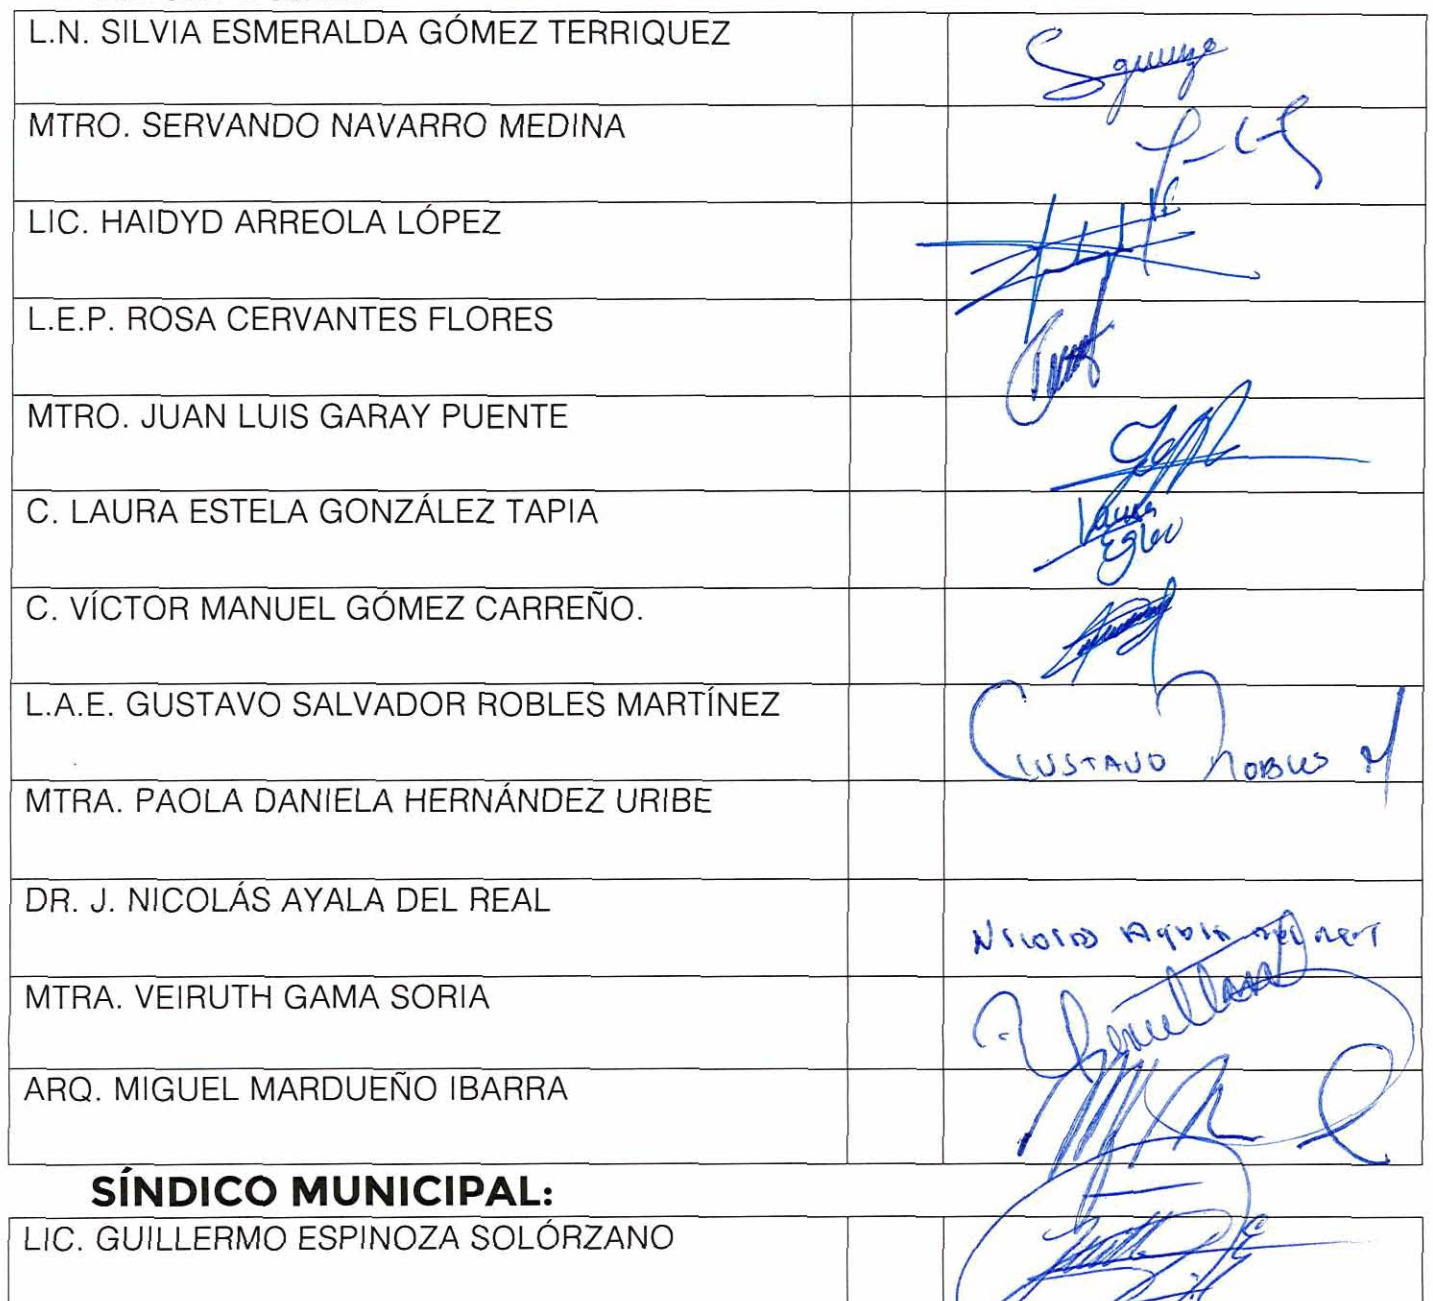 L.N. SILVIA ESMERALDA GÓMEZ TERRIQUEZ
MTRO. SERVANDO NAVARRO MEDINA
LIC. HAIDYD ARREOLA LÓPEZ
L.E.P. ROSA CERVANTES FLORES
MTRO. JUAN LUIS GARAY PUENTE
C. LAURA ESTELA GONZÁLEZ TAPIA
Laura
C. VÍCTOR MANUEL GÓMEZ CARREÑO.
L.A.E. GUSTAVO SALVADOR ROBLES MARTÍNEZ
GUSTAVO ROBLES M
MTRA. PAOLA DANIELA HERNÁNDEZ URIBE
DR. J. NICOLÁS AYALA DEL REAL
MTRA. VEIRUTH GAMA SORIA
ARQ. MIGUEL MARDUEÑO IBARRA
SÍNDICO MUNICIPAL:
LIC. GUILLERMO ESPINOZA SOLÓRZANO